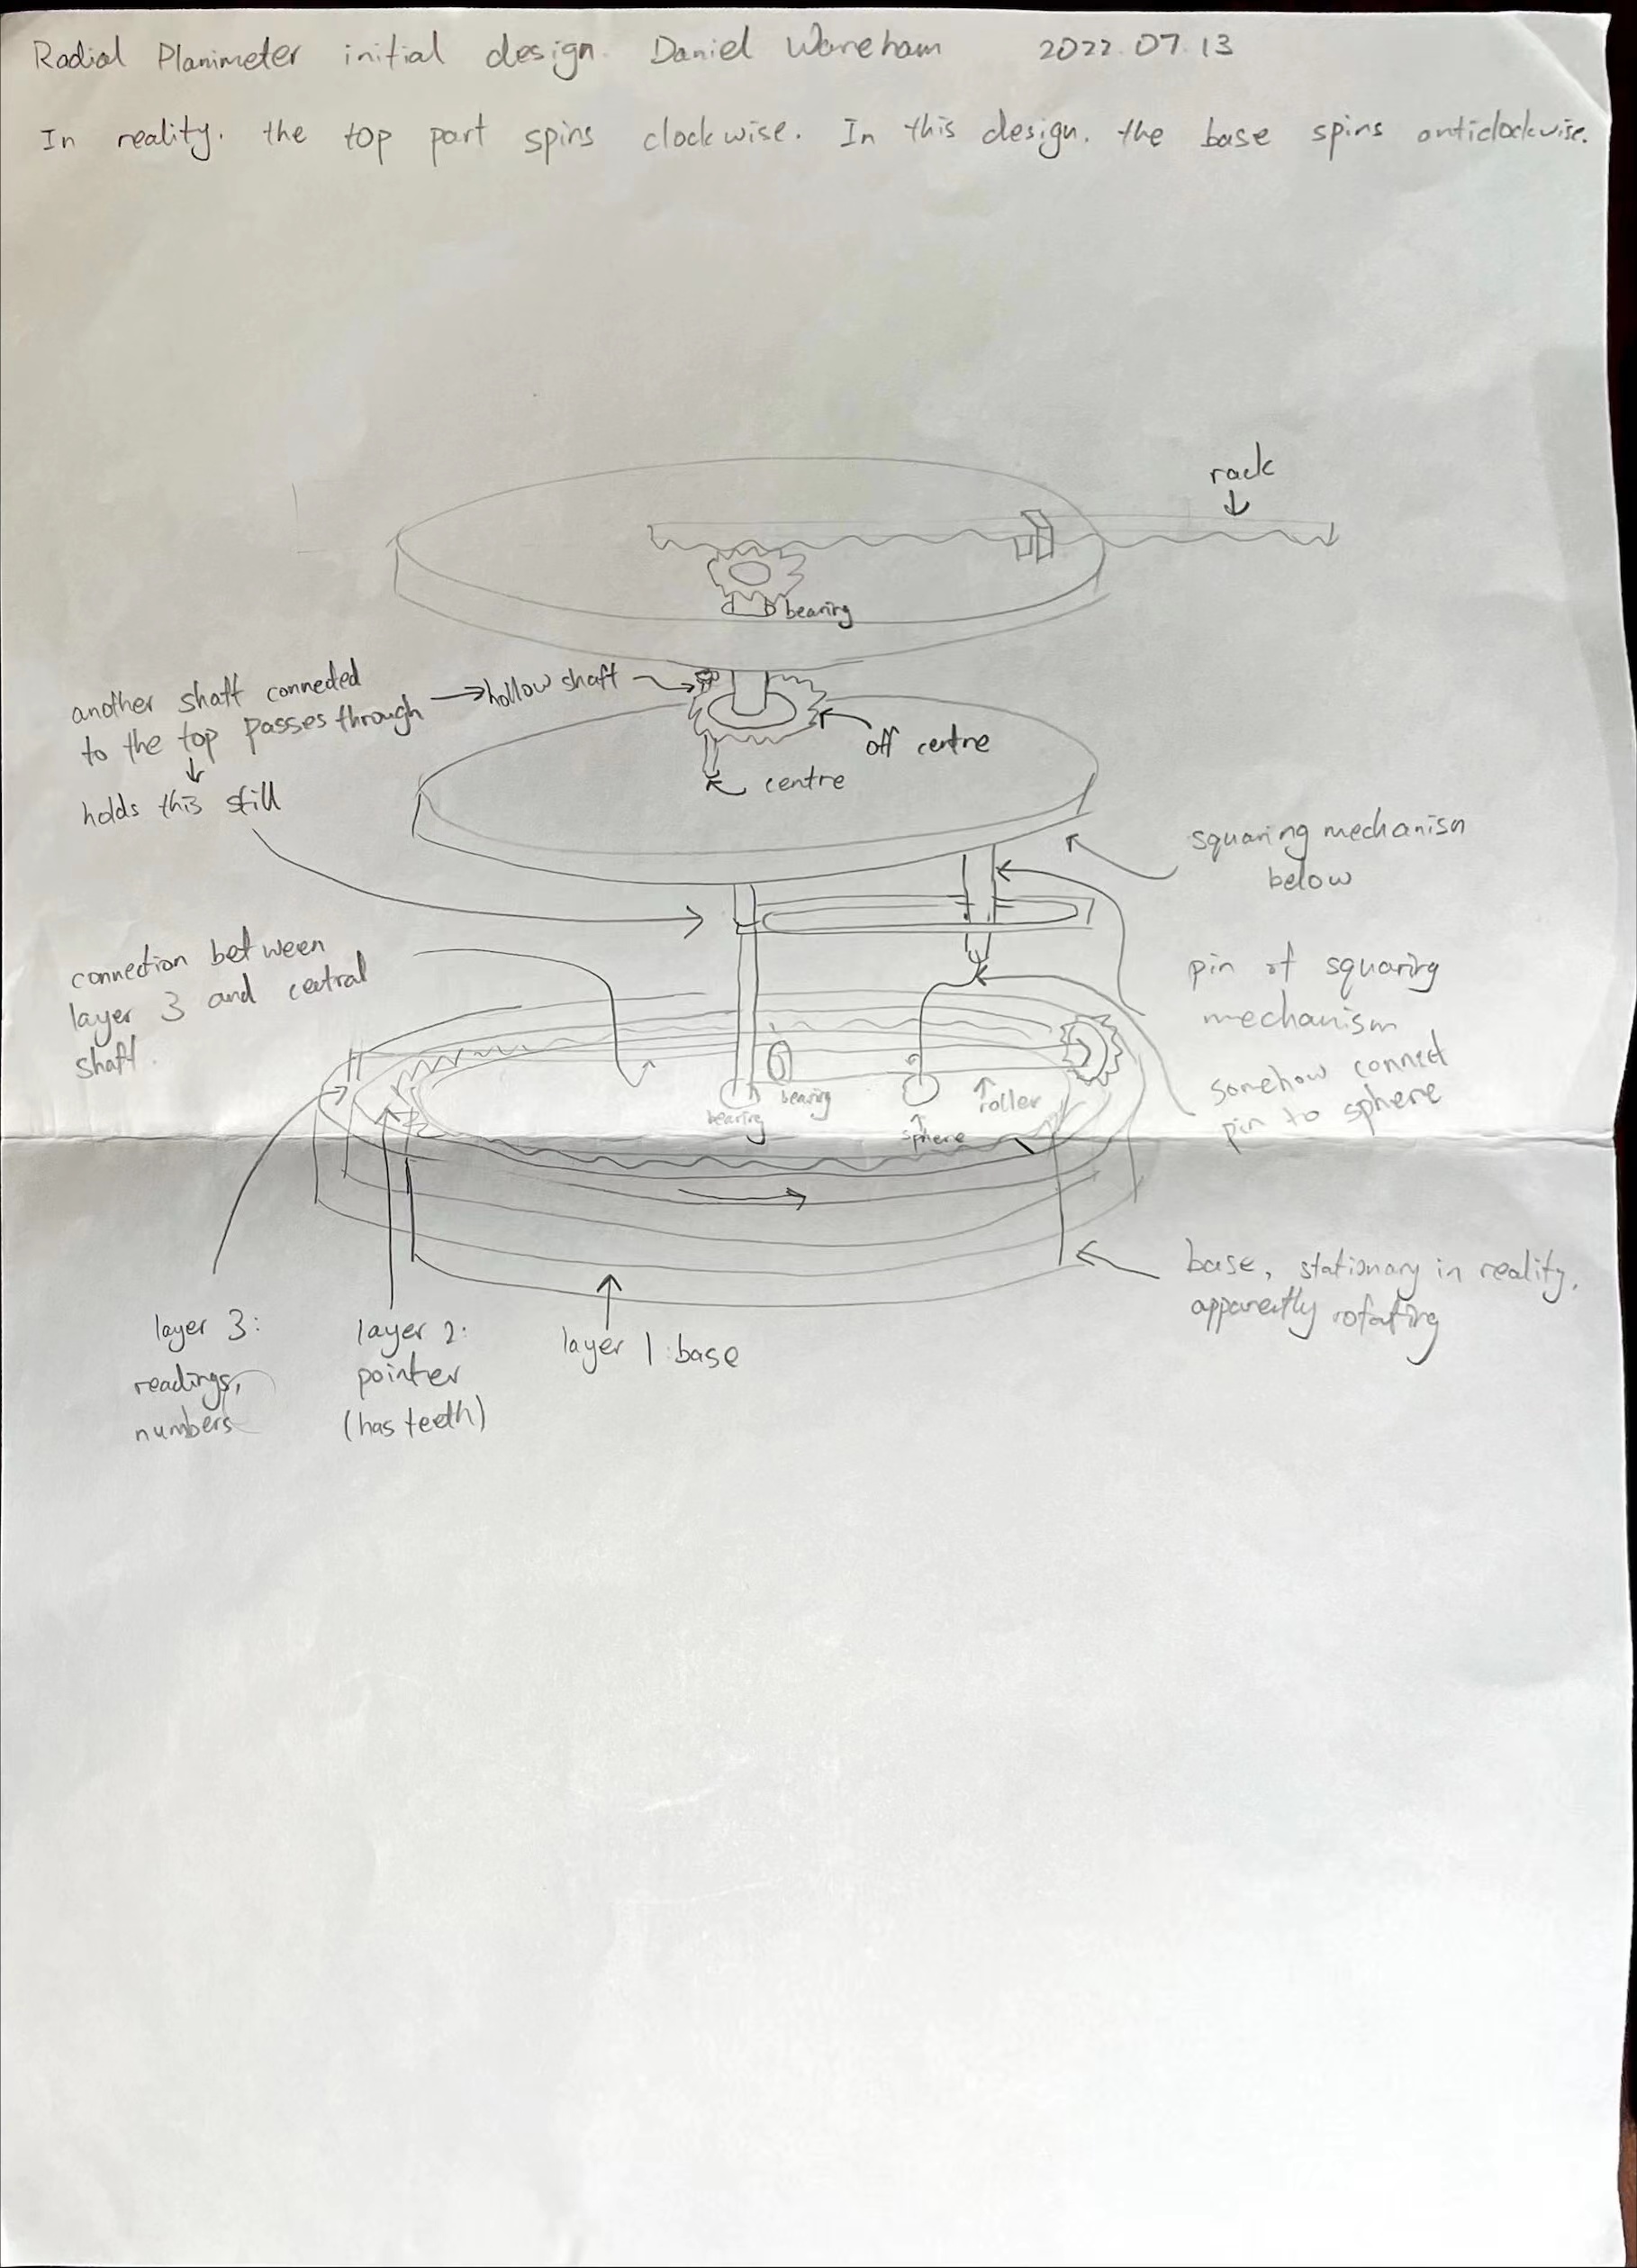 Radial Planimeter initial design. Daniel Wareham 2022.07.13
In reality. the top part spins clockwise. In this design. the base spins anticlockwise.
rack
bearing
another shaft connected
to the top passes through
holds this still
hollow shaft
off centre
centre
squaring mechanism
below
connection between
layer 3 and central
shaft.
pin of squaring
mechanism
somehow connect
pin to sphere
bearing
bearing
sphere
roller
base, stationary in reality,
apparently rotating
layer 3:
readings,
numbers
layer 2:
pointer
(has teeth)
layer 1: base